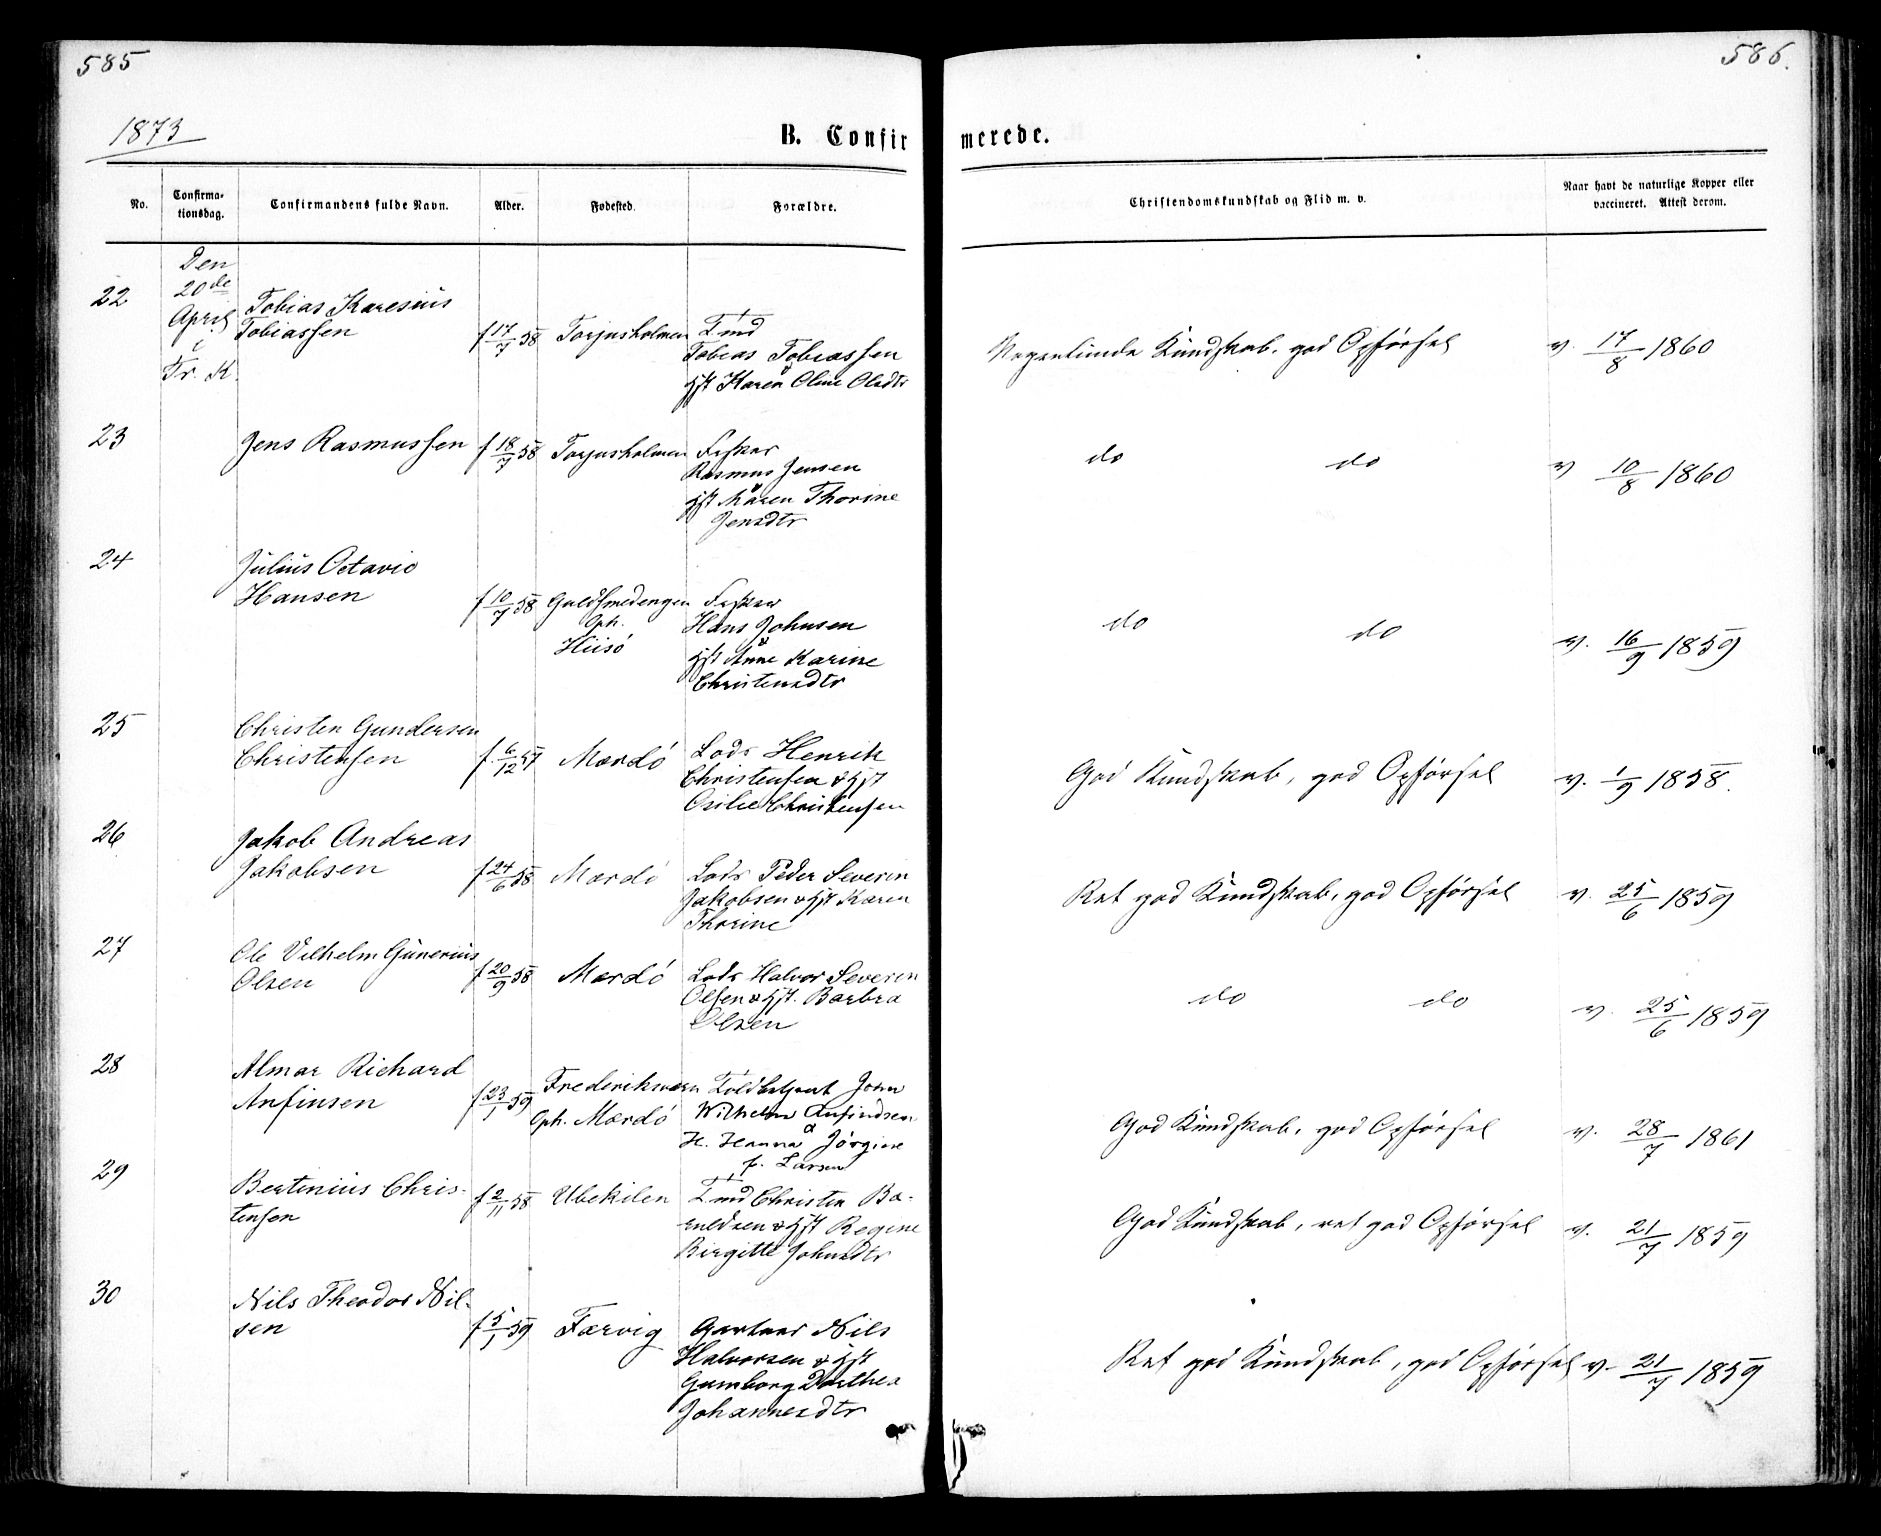 585
586.
1873
B. Confir merede.
No.
Confirma-
tionsdag.
Confirmandens fulde Navn.
Alder.
Fødested.
Forældre.
Christendomskundskab og Flid m. v.
Naar havt de naturlige Kopper eller
vaccineret. Attest derom.
22
Den
20de
April
i
Tr. K.
Tobias
Tobiassen
f 17/7 58
Torjusholmen
Tmd
Tobias Tobiassen
& Hst Karen Oline Olsdtr
Nogenlunde Kundskab, god Opførsel
v. 17/8 1860
23
Jens Rasmussen
f 18/7 58
Torjusholmen
Fisker
Rasmus Jensen
& Hst Maren Thorine
Jensdtr
do do
v 10/8 1860
24
Julius Octavio
Hansen
f 10/7 58
Guldsmedengen
Oph.
Hisø
Fisker
Hans Johnsen
& Hst Anne Karine
Christensdtr
do do
v. 16/9 1859
25
Christen Gundersen
Christensen
f. 6/12 57
Mærdø
Lods Henrik
Christensen & Hst
Cecilie Christensen
God Kundskab, god Opførsel
v. 1/9 1858.
26
Jakob Andreas
Jakobsen
f 24/6 58
Mærdø
Lods Peder Severin
Jakobsen & Hst Karen
Thorine
Ret god Kundskab, god Opførsel
v. 25/6 1859
27
Ole Vilhelm Gunerius
Olsen
f 20/9 58
Mærdø
Lods Halvor Severin
Olsen & Hst. Barbra
Olsen
do do
v. 25/6 1859
28
Almar Richard
Anfinsen
f 23/1 59
Frederiksværn
Oph. Mærdø
Toldbetjent John
Wilhelm Anfindsen
& H. Hanna Jørgine
f. Larsen
God Kundskab, god Opførsel
v. 28/7 1861
29
Bertinius Chris-
tensen
f 2/11 58
Ubekilen
Tmd Christen
& Hst Regine
Birgitte Johnsdtr
God Kundskab, ret god Opførsel
v. 21/7 1859
30
Nils Theodor Nil-
sen
f 5/1 59
Færvig
Gartner Nils
Halvorsen & Hst
Gumborg Dorthea
Johannesdtr
Ret god Kundskab, god Opførsel
v. 21/7 1859